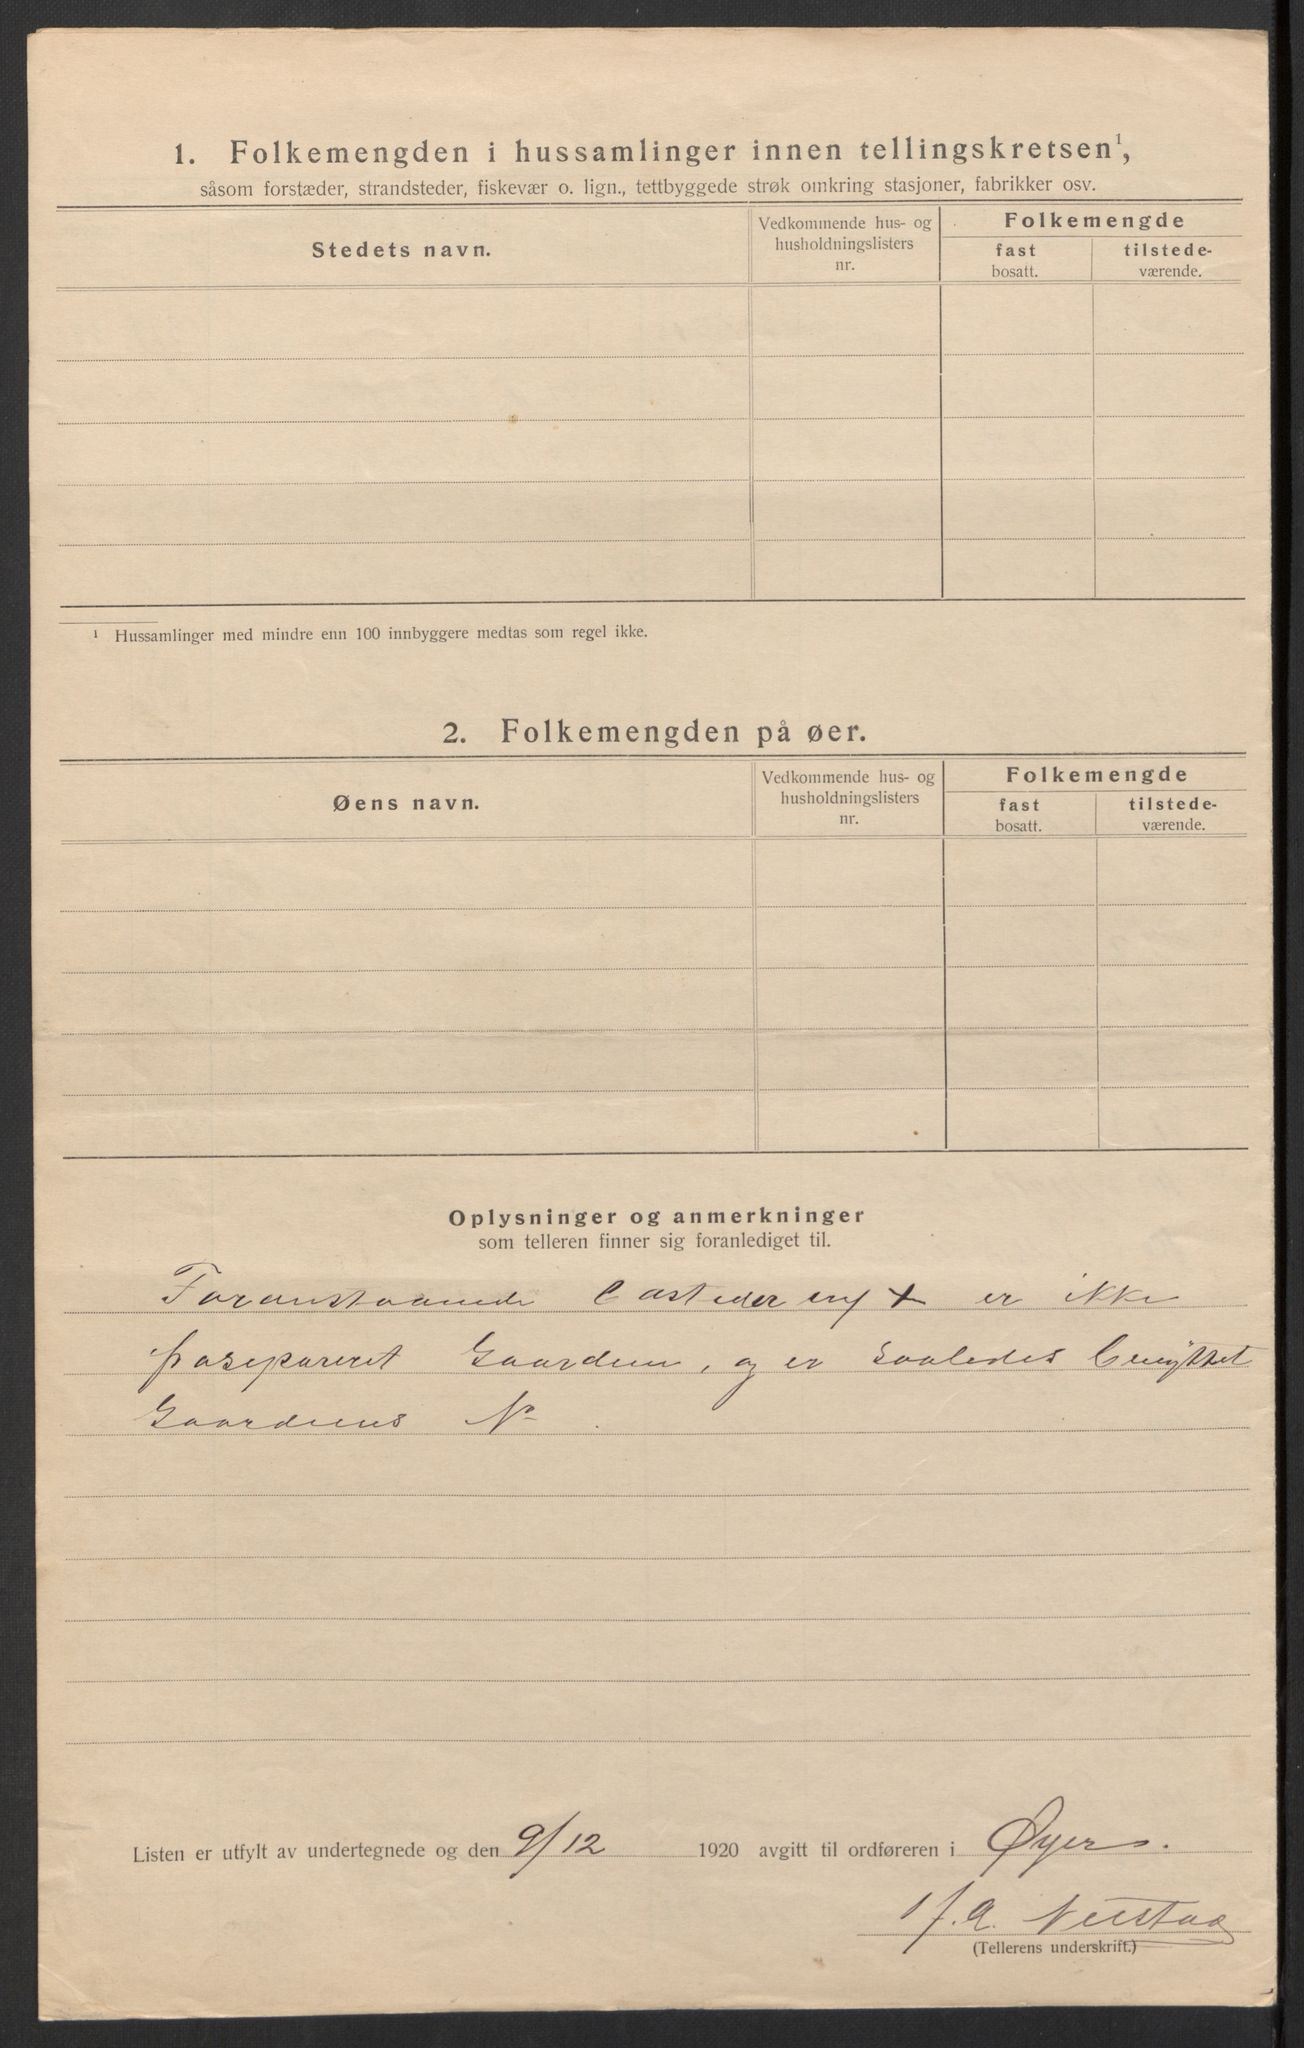 1. Folkemengden i hussamlinger innen tellingskretsen¹,
såsom forstæder, strandsteder, fiskevær o. lign., tettbyggede strøk omkring stasjoner, fabrikker osv.
Stedets navn.
Vedkommende hus- og
husholdningslisters
nr.
Folkemengde
fast
bosatt.
tilstede-
værende.
¹ Hussamlinger med mindre enn 100 innbyggere medtas som regel ikke.
2. Folkemengden på øer.
Øens navn.
Vedkommende hus- og
husholdningslisters
nr.
Folkemengde
fast
bosatt.
tilstede-
værende.
Oplysninger og anmerkninger
som telleren finner sig foranlediget til.
Foranstaaende er ikke
Gaarden, og er saaledes benyttet
Gaardens No
Listen er utfylt av undertegnede og den 9/12 1920 avgitt til ordføreren i Øyer.
(Tellerens underskrift.)